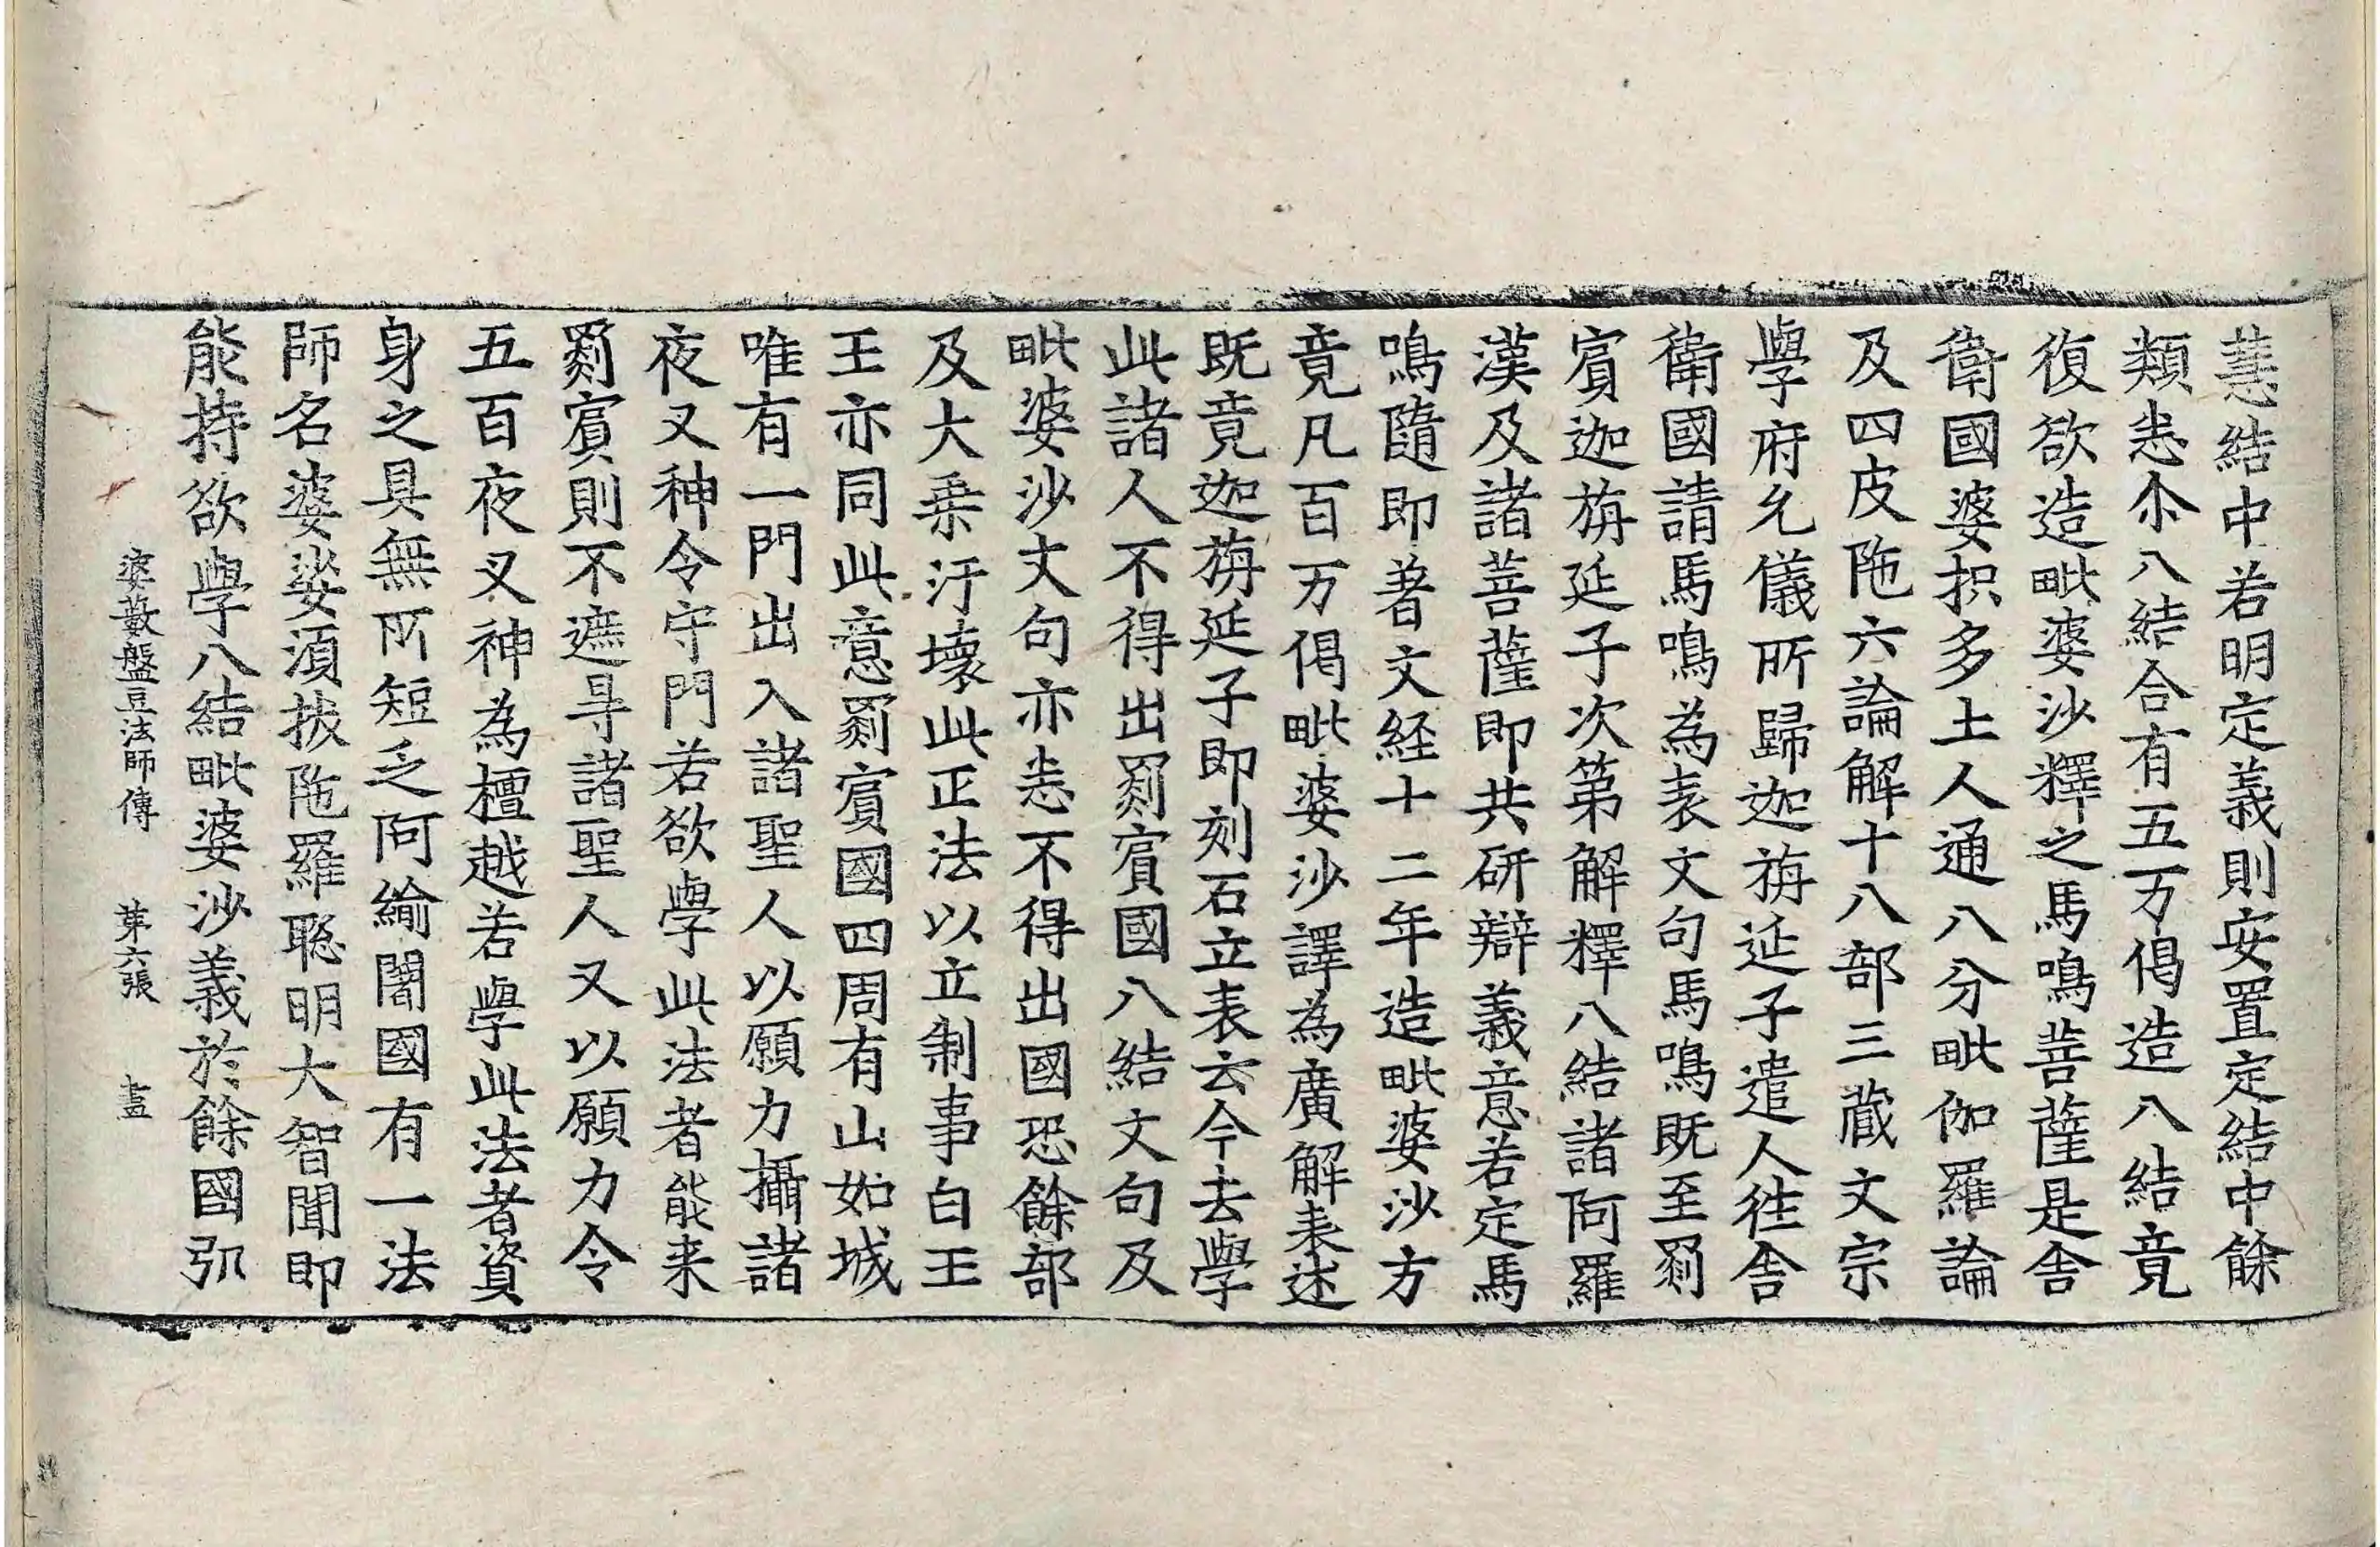 慧結中若明定義則安置定結中餘
類悉尒八結合有五万偈造八結竟
復欲造毗婆沙釋之馬鳴菩薩是舍
衛國婆枳多土人通八分毗伽羅論
及四皮陁六論解十八部三藏文宗
學府允儀所歸迦旃延子遣人往舍
衛國請馬鳴為表文句馬鳴既至罽
賓迦旃延子次第解釋八結諸阿羅
漢及諸菩薩即共研辯義意若定馬
鳴隨即著文経十二年造毗婆沙方
竟凡百万偈毗婆沙譯為廣解表述
既竟迦旃延子即刻石立表云今去學
此諸人不得出罽賓國八結文句及
毗婆沙文句亦悉不得出國恐餘部
及大乗汙壞此正法以立制事白王
王亦同此意罽賓國四周有山如城
唯有一門出入諸聖人以願力攝諸
夜叉神令守門若欲學此法者能来
罽賓則不遮㝵諸聖人又以願力令
五百夜叉神為檀越若學此法者資
身之具無所短乏阿緰闍國有一法
師名婆娑須拔陁羅聡明大智聞即
能持欲學八結毗婆沙義於餘國弘
婆藪盤豆法師傳 第六張 畫